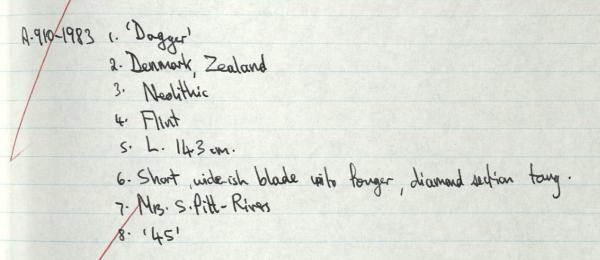 A.910-1983 1. 'Dagger'
2. Denmark, Zealand
3. Neolithic
4. Flint
5. L. 14.3 cm.
6. Short, wide-ish blade with longer, diamond section tang.
7. Mrs. S. Pitt-Rivers
8. '45'